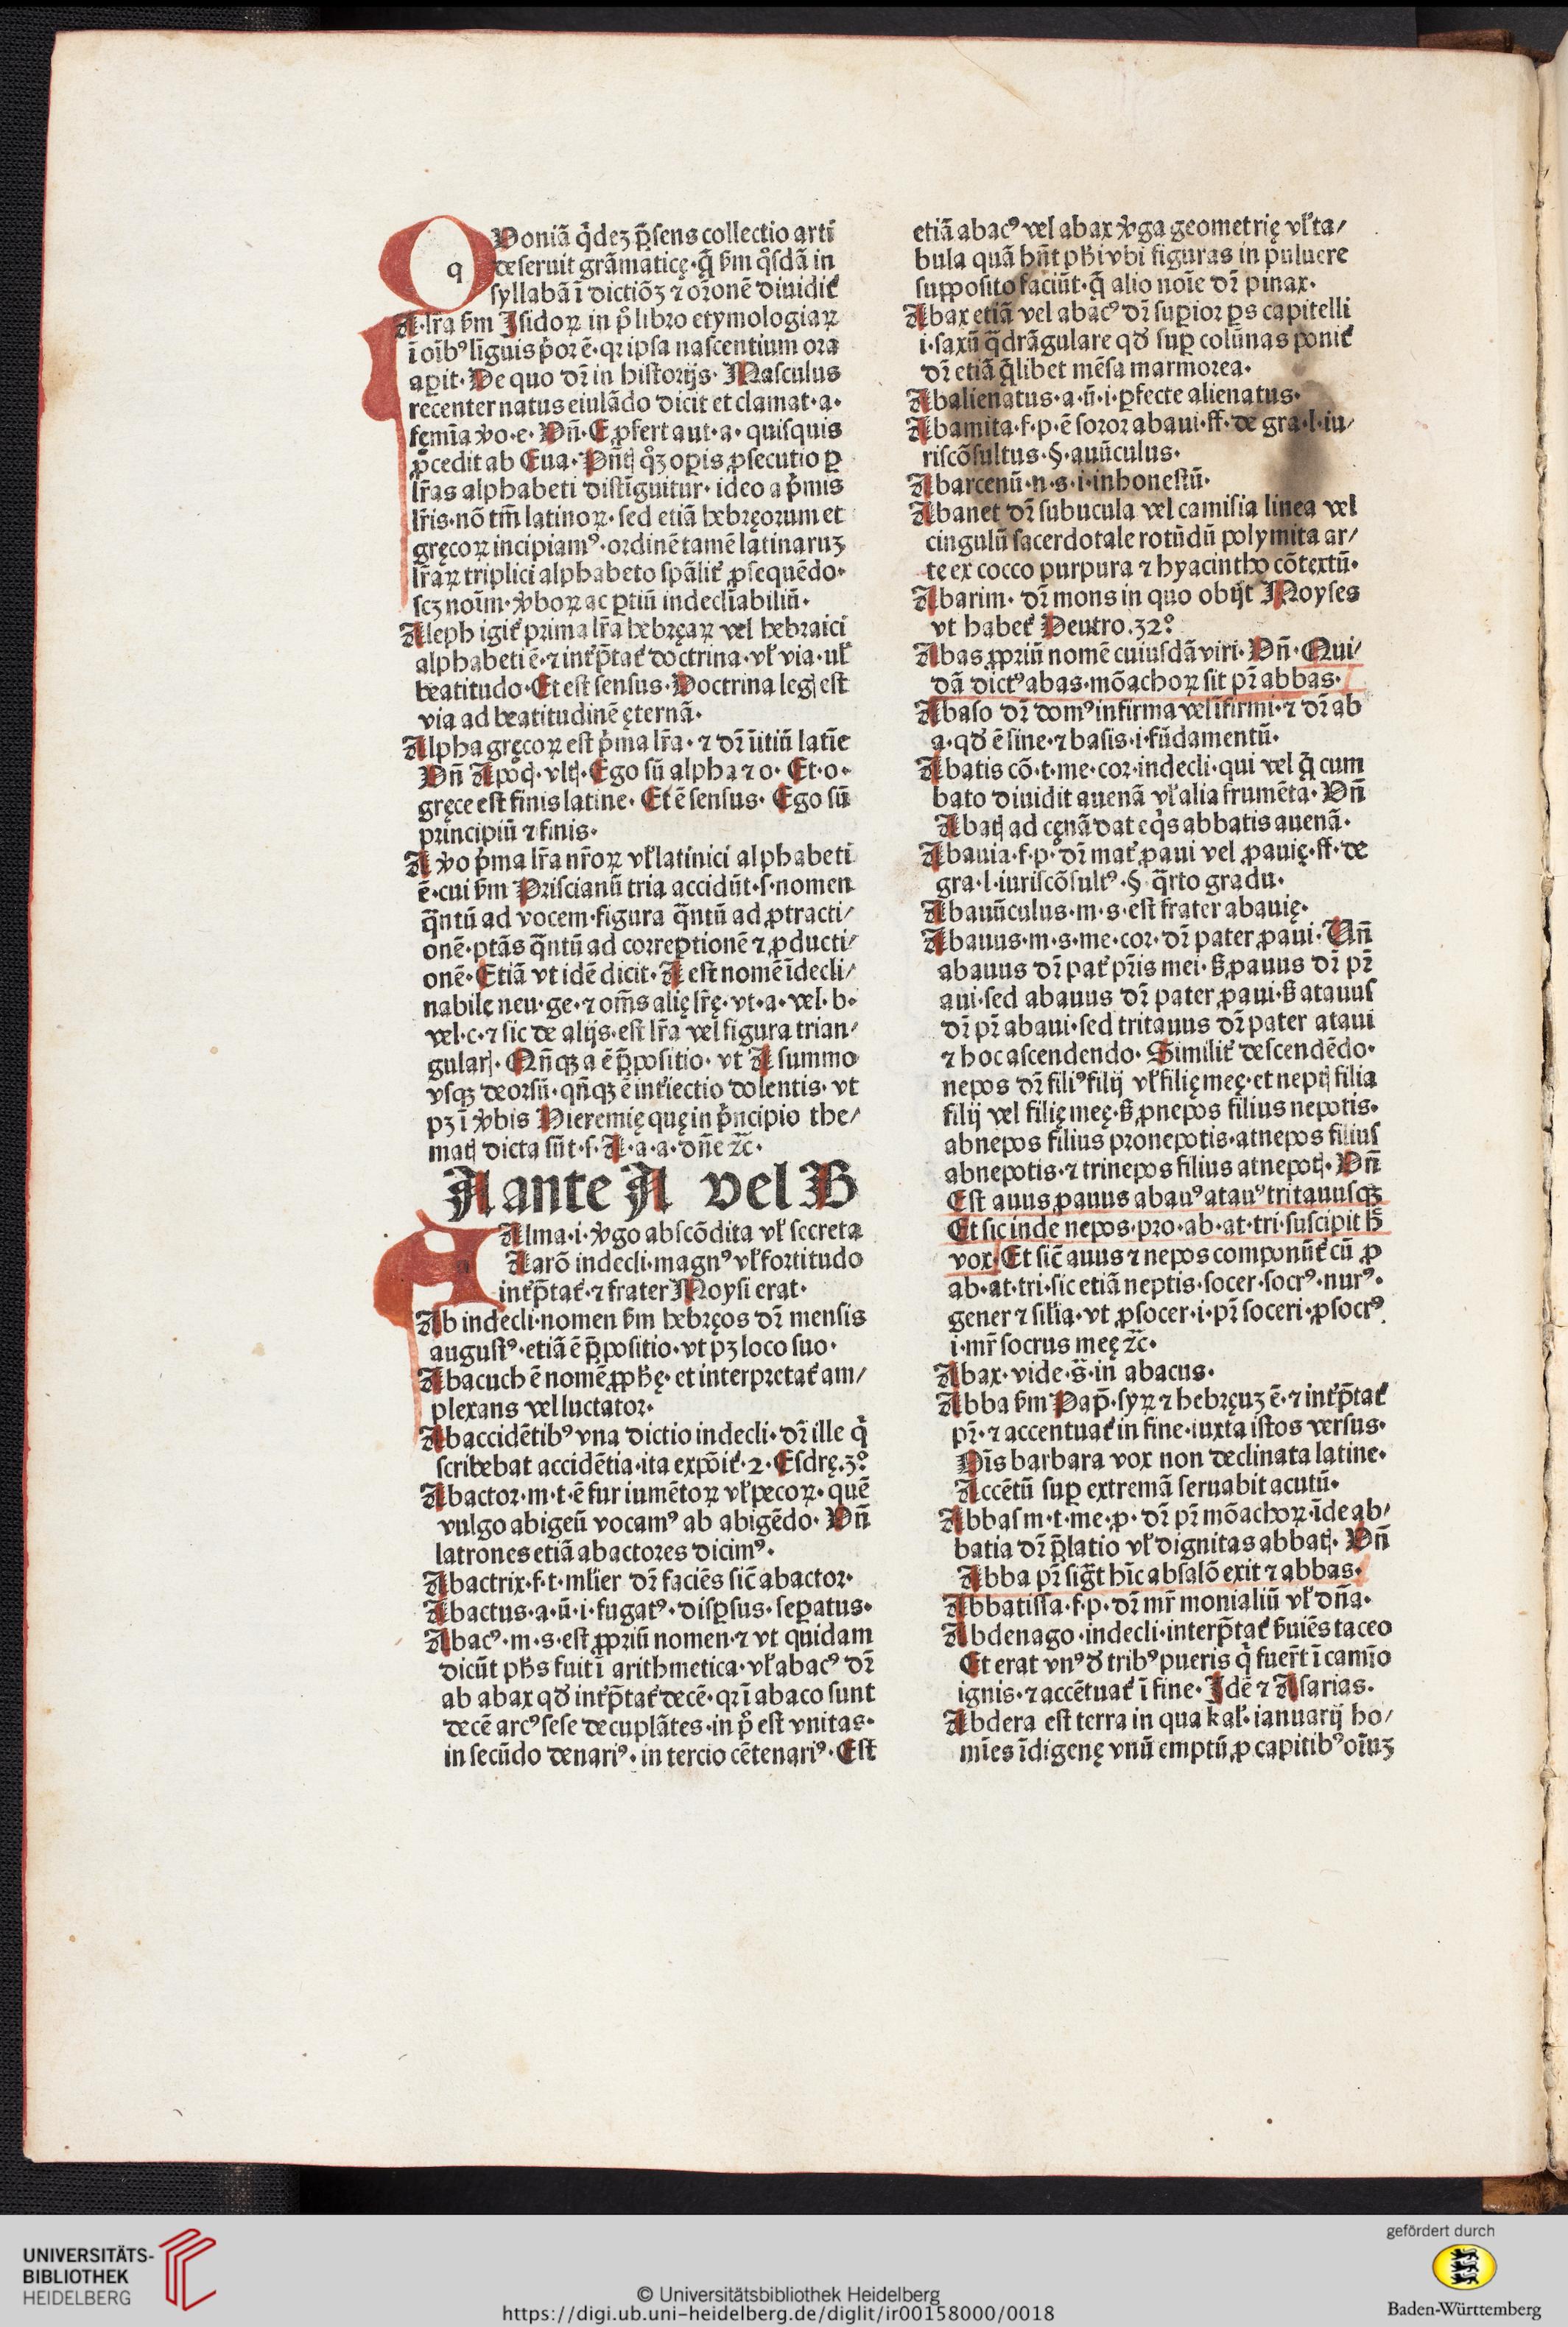 QVoniã q̃dez p̃sens collectio arti
q deseruit grãmaticę·q̃ ẞm q̊sdã in
syllabã ĩ dictiõz ⁊ or̃onẽ diuidit᷑
A·lr̃a ẞm Isidoꝝ in pº libro etymologiaꝝ
ĩ oĩbꝰ lĩguis p̓or ẽ·qꝛ ipsa nascentium ora
aꝑit· De quo dr̃ in historijs· Masculus
recenter natus eiulãdo dicit et clamat·a·
femĩa ꝟo·e· Vñ·E ꝓfert aut·a·quisquis
ꝓcedit ab Eua· Pñtꝭ q̊z oꝑis ꝓsecutio ꝑ
lr̃as alphabeti distĩguitur·ideo a p̓mis
lr̃is·nõ tm̃ latinoꝝ·sed etiã hebręorum et
gręcoꝝ incipiamꝰ·ordinẽ tamẽ latinaruz
lr̃aꝝ triplici alphabeto spãlit᷑ ꝓsequẽdo·
scz noĩm·ꝟboꝝ ac ꝑtiũ indeclĩabiliũ·
Aleph igit᷑ prima lr̃a hebręaꝝ vel hebraici
alphabeti ẽ·⁊ int᷑p̃tat᷑ doctrina·vł via·uł
beatitudo·Et est sensus·Doctrina legꝭ est
via ad beatitudinẽ ęternã·
Alpha gręcoꝝ est p̓ma lr̃a·⁊ dr̃ ĩitiũ latĩe
Vñ Apo̊cꝭ·vltꝭ·Ego sũ alpha ⁊ o·Et·o·
gręce est finis latine·Et ẽ sensus·Ego sũ
principiũ ⁊ finis·
A ꝟo p̓ma lr̃a nr̃oꝝ vł latinici alphabeti
ẽ·cui ẞm Priscianũ tria accidũt·s·nomen
q̃ntũ ad vocem·figura q̃ntũ ad ꝓtracti/
onẽ·ptãs q̃ntũ ad correptionẽ ⁊ ꝓducti/
onẽ·Etiã vt idẽ dicit·A est nomẽ ĩdecli/
nabile neu·ge·⁊ om̃s alię lr̃ę·vt·a·vel·b·
vel·c·⁊ sic de alijs·est lr̃a vel figura trian/
gularꝭ·Qñqꝫ a ẽ p̃positio·vt A summo
vsqꝫ deorsũ·qñqꝫ ẽ int᷑iectio dolentis·vt
pꝫ ĩ ꝟbis Hieremię quę in p̓ncipio the/
matꝭ dicta sũt·s·A·a·a·dñe ⁊c̃·
A ante A vel B
Alma·i·ꝟgo abscõdita vł secreta
Aarõ indecli·magnꝰ vł fortitudo
int᷑p̃tat᷑·⁊ frater Moysi erat·
Ab indecli·nomen ẞm hebręos dr̃ mensis
augustꝰ·etiã ẽ p̃positio·vt pꝫ loco suo·
Abacuch ẽ nomẽ ꝓpħę·et interpretat᷑ am/
plexans vel luctator·
Abaccidẽtibꝰ vna dictio indecli·dr̃ ille q̓
scribebat accidẽtia·ita expõit᷑·2·Esdrę·3º
Abactor·m·t·ẽ fur iumẽtoꝝ vł pecoꝝ·quẽ
vulgo abigeũ vocamꝰ ab abigẽdo·Vñ
latrones etiã abactores dicimꝰ·
Abactrix·f·t·mlier dr̃ faciẽs sic̃ abactor·
Abactus·a·ũ·i·fugatꝰ·disꝑsus·seꝑatus·
Abacꝰ·m·s·est ꝓpriũ nomen·⁊ vt quidam
dicũt pħs fuit ĩ arithmetica·vł abacꝰ dr̃
ab abax qđ int᷑p̃tat᷑ decẽ·qꝛ ĩ abaco sunt
decẽ arcꝰ sese decuplãtes·in pº est vnitas·
in secũdo denariꝰ·in tercio cẽtenariꝰ·Est
etiã abacꝰ vel abax ꝟga geometrię vł ta/
bula quã hñt pħi vbi figuras in puluere
supposito faciũt·q̃ alio noĩe dr̃ pinax·
Abax etiã vel abacꝰ dr̃ suꝑior ꝑs capitelli
i·saxũ q̃drãgulare qđ suꝑ colũnas ponit᷑
dr̃ etiã q̃libet mẽsa marmorea·
Abalienatus·a·ũ·i·ꝑfecte alienatus·
Abamita·f·p·ẽ soror abaui·ff·de gra·l·iu/
riscõsultus·§·auũculus·
Abarcenũ·n·s·i·inhonestũ·
Abanet dr̃ subucula vel camisia linea vel
cingulũ sacerdotale rotũdũ polymita ar/
te ex cocco purpura ⁊ hyacintho cõtextũ·
Abarim·dr̃ mons in quo obijt Moyses
vt habet᷑ Deutro.32º
Abas ꝓpriũ nomẽ cuiusdã viri·Vñ·Qui/
dã dictꝰ abas·mõachoꝝ sit pr̃ abbas·
Abaso dr̃ domꝰ infirma vel ĩfirmi·⁊ dr̃ ab
a·qđ ẽ sine·⁊ basis·i·fũdamentũ·
Abatis cõ·t·me·cor·indecli·qui vel q̃ cum
bato diuidit auenã vł alia frumẽta·Vñ
Abatꝭ ad cęnã dat eq̓s abbatis auenã·
Abauia·f·p·dr̃ mat᷑ ꝓaui vel ꝓauię·ff·de
gra·l·iuriscõsultꝰ·§·q̃rto gradu·
Abauũculus·m·s·est frater abauię·
Abauus·m·s·me·cor·dr̃ pater ꝓaui·Vñ
abauus dr̃ pat᷑ pr̃is mei·ẞ ꝓauus dr̃ pr̃
aui·sed abauus dr̃ pater ꝓaui·ẞ atauus
dr̃ pr̃ abaui·sed tritauus dr̃ pater ataui
⁊ hoc ascendendo·Similit᷑ descendẽdo·
nepos dr̃ filiꝰ filij vł filię meę·et neptꝭ filia
filij vel filię meę·ẞ ꝓnepos filius nepotis·
abnepos filius pronepotis·atnepos filius
abnepotis·⁊ trinepos filius atnepotꝭ·Vñ
Est auus ꝓauus abauꝰ atauꝰ tritauusqꝫ
Et sic inde nepos·pro·ab·at·tri·suscipit ẞ
vox·Et sic̃ auus ⁊ nepos componũt᷑ cũ ꝓ
ab·at·tri·sic etiã neptis·socer·socrꝰ·nurꝰ·
gener ⁊ silia·vt ꝓsocer·i·pr̃ soceri·ꝓsocrꝰ
i·mr̃ socrus meę ⁊c̃·
Abax·vide·s̃·in abacus·
Abba ẞm Pap̃·syꝝ ⁊ hebręuz ẽ·⁊ int᷑p̃tat᷑
pr̃·⁊ accentuat᷑ in fine·iuxta istos versus·
Hĩs barbara vox non declinata latine·
Accẽtũ suꝑ extremã seruabit acutũ·
Abbas m·t·me·ꝓ·dr̃ pr̃ mõachoꝝ·ĩde ab/
batia dr̃ p̃latio vł dignitas abbatꝭ·Vñ
Abba pr̃ sig̃t hĩc absalõ exit ⁊ abbas·
Abbatissa·f·p·dr̃ mr̃ monialiũ vł dñã·
Abdenago·indecli·interp̃tat᷑ ẞuiẽs taceo
Et erat vnꝰ đ tribꝰ pueris q̓ fuer̃t ĩ camĩo
ignis·⁊ accẽtuat᷑ ĩ fine·Idẽ ⁊ Asarias·
Abdera est terra in qua kał·ianuarij ho/
mĩes ĩdigenę vnũ emptũ ꝓ capitibꝰ oĩuz
UNIVERSITÄTS-
BIBLIOTHEK
HEIDELBERG
© Universitätsbibliothek Heidelberg
https://digi.ub.uni-heidelberg.de/diglit/ir00158000/0018
gefördert durch
Baden-Württemberg